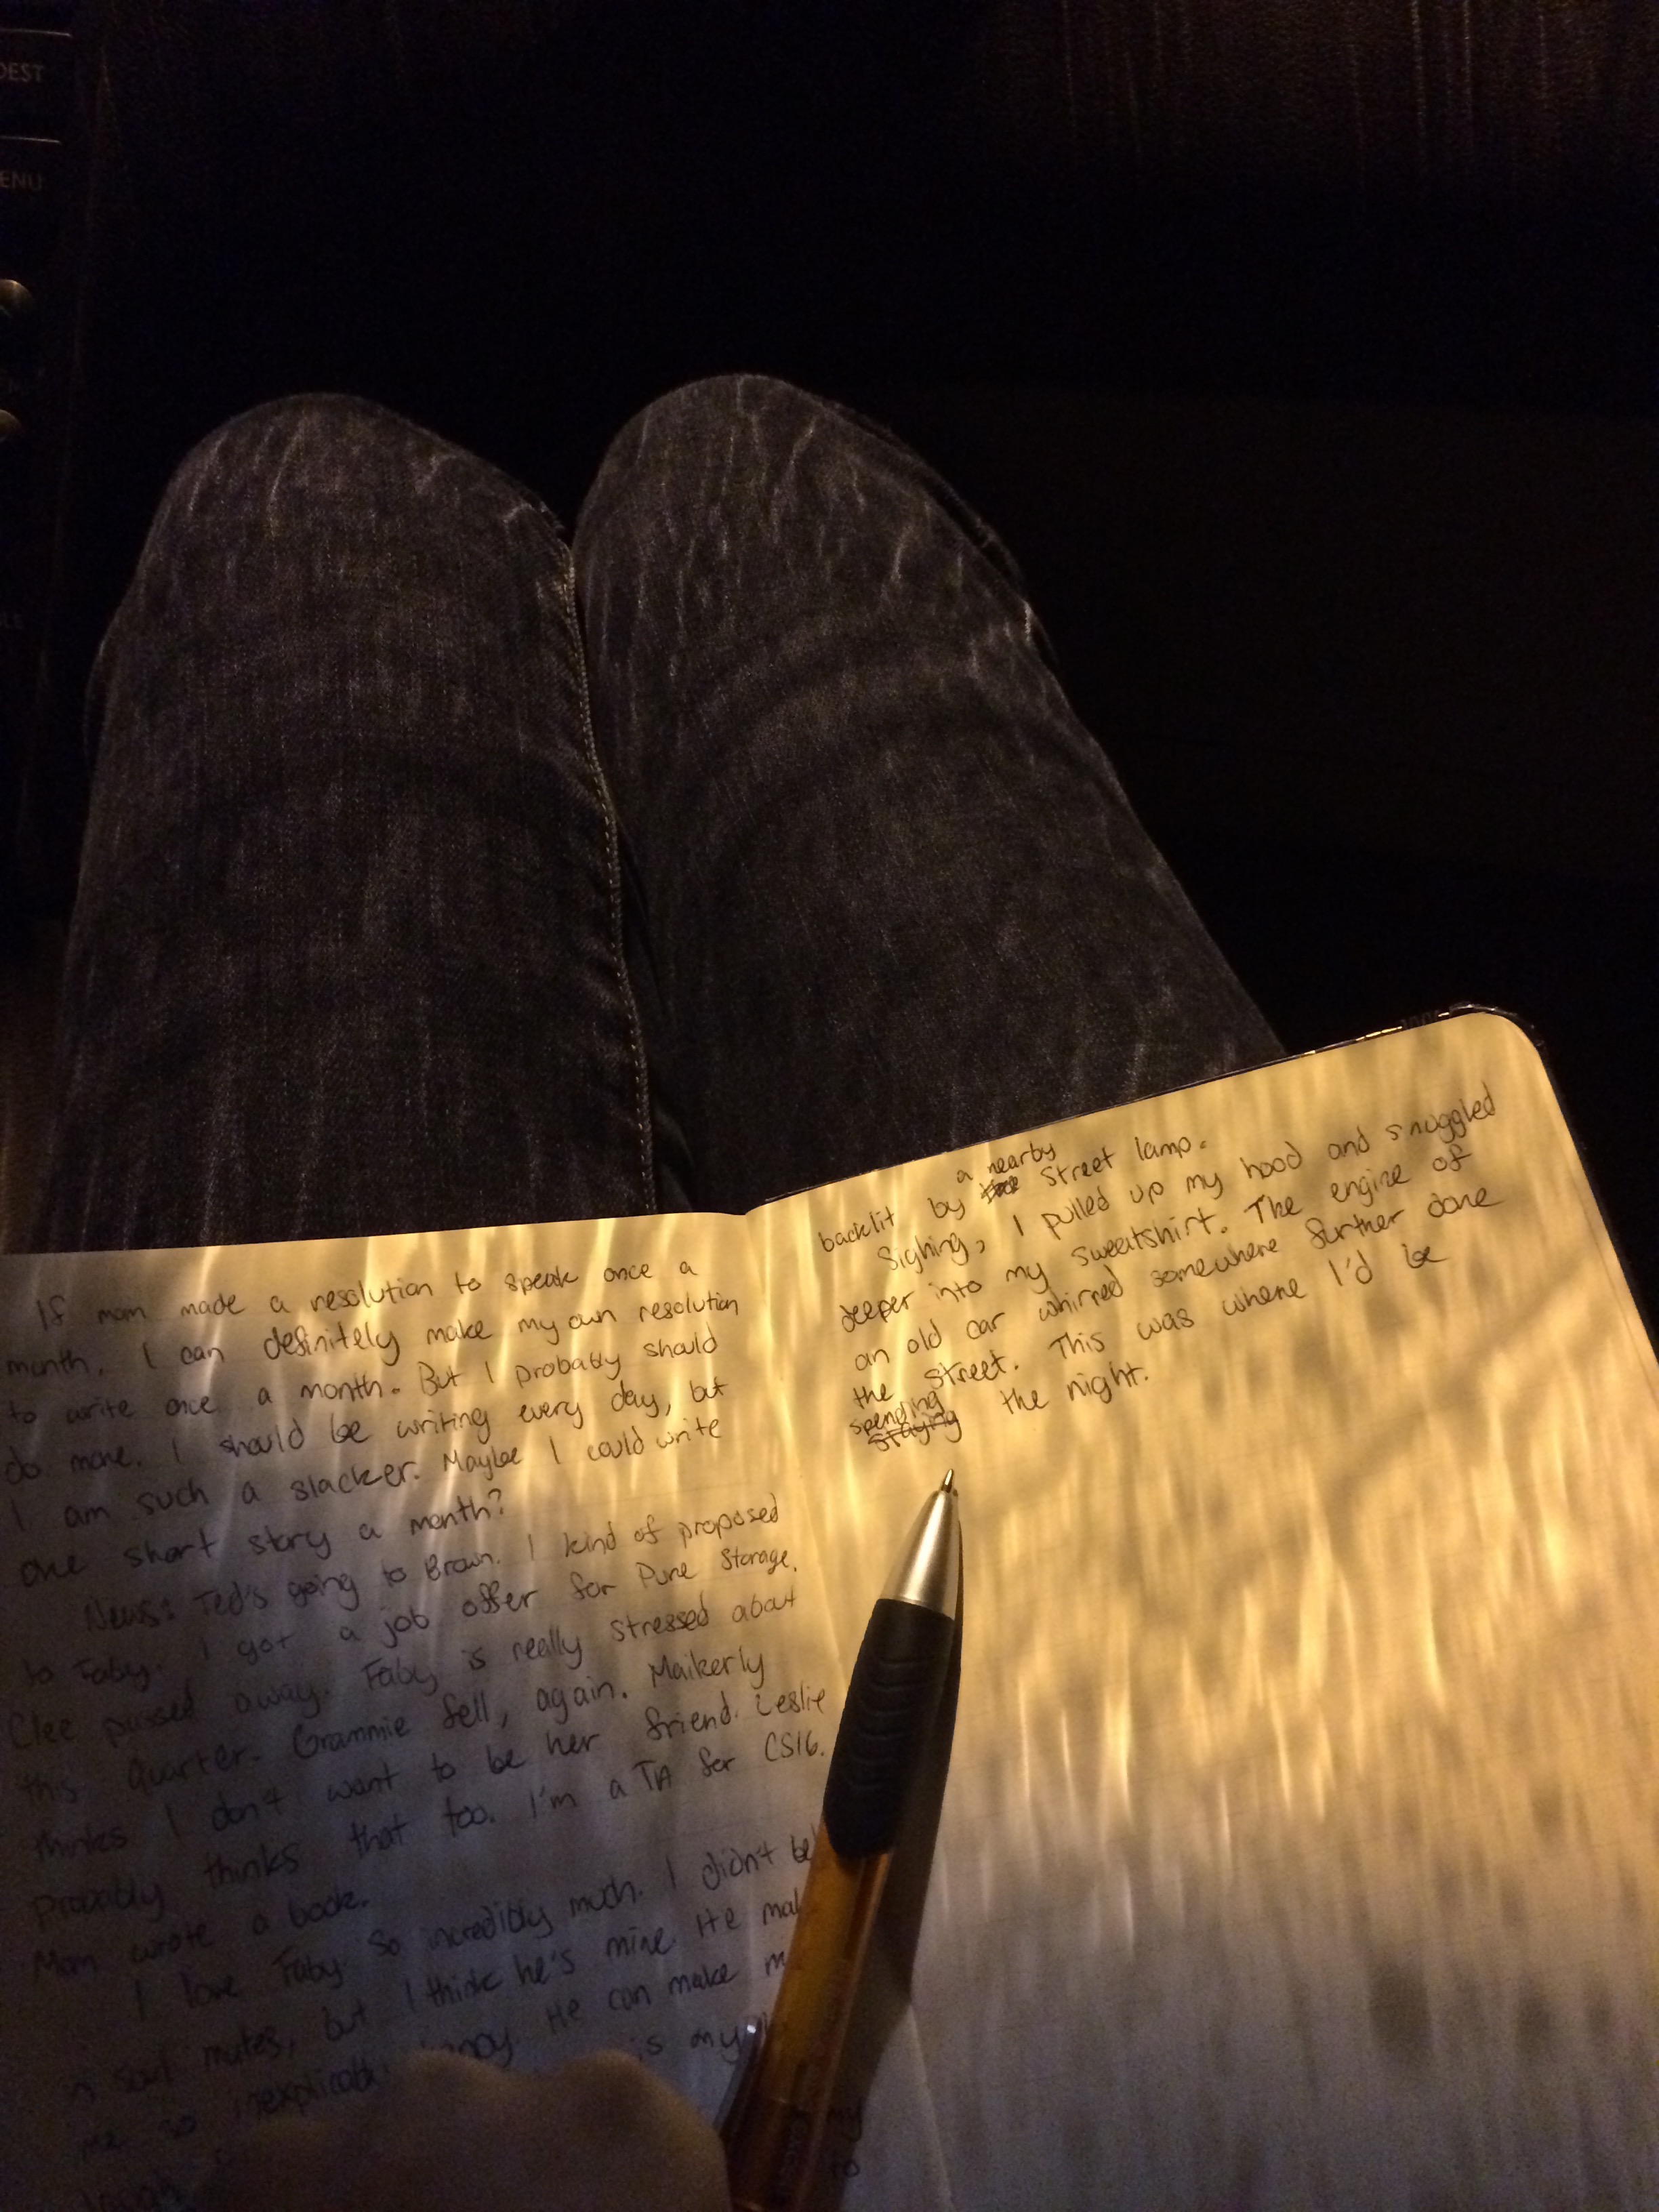 DEST
ENU
If mom made a resolution to speak once a
month, I can definitely make my own resolution
to write once a month. But I probably should
do more. I should be writing every day, but
I am such a slacker. Maybe I could write
one short story a month?
News: Ted's going to Brown. I kind of proposed
to Faby. I got a job offer for Pure Storage.
Clee passed away. Faby is really stressed about
this quarter. Grammie fell, again. Maikerly
thinks I don't want to be her friend. Leslie
probably thinks that too. I'm a TA for CS16.
Mom wrote a book.
I love Faby so incredibly much. I didn't bel
in soul mates, but I think he's mine. He mak
me so inexplicabl He can make m
is my
my
to
a nearby
backlit by street lamp.
Sighing, I pulled up my hood and snuggled
deeper into my sweatshirt. The engine of
an old car whirred somewhere further done
the street. This was where I'd be
spending
staying the night.